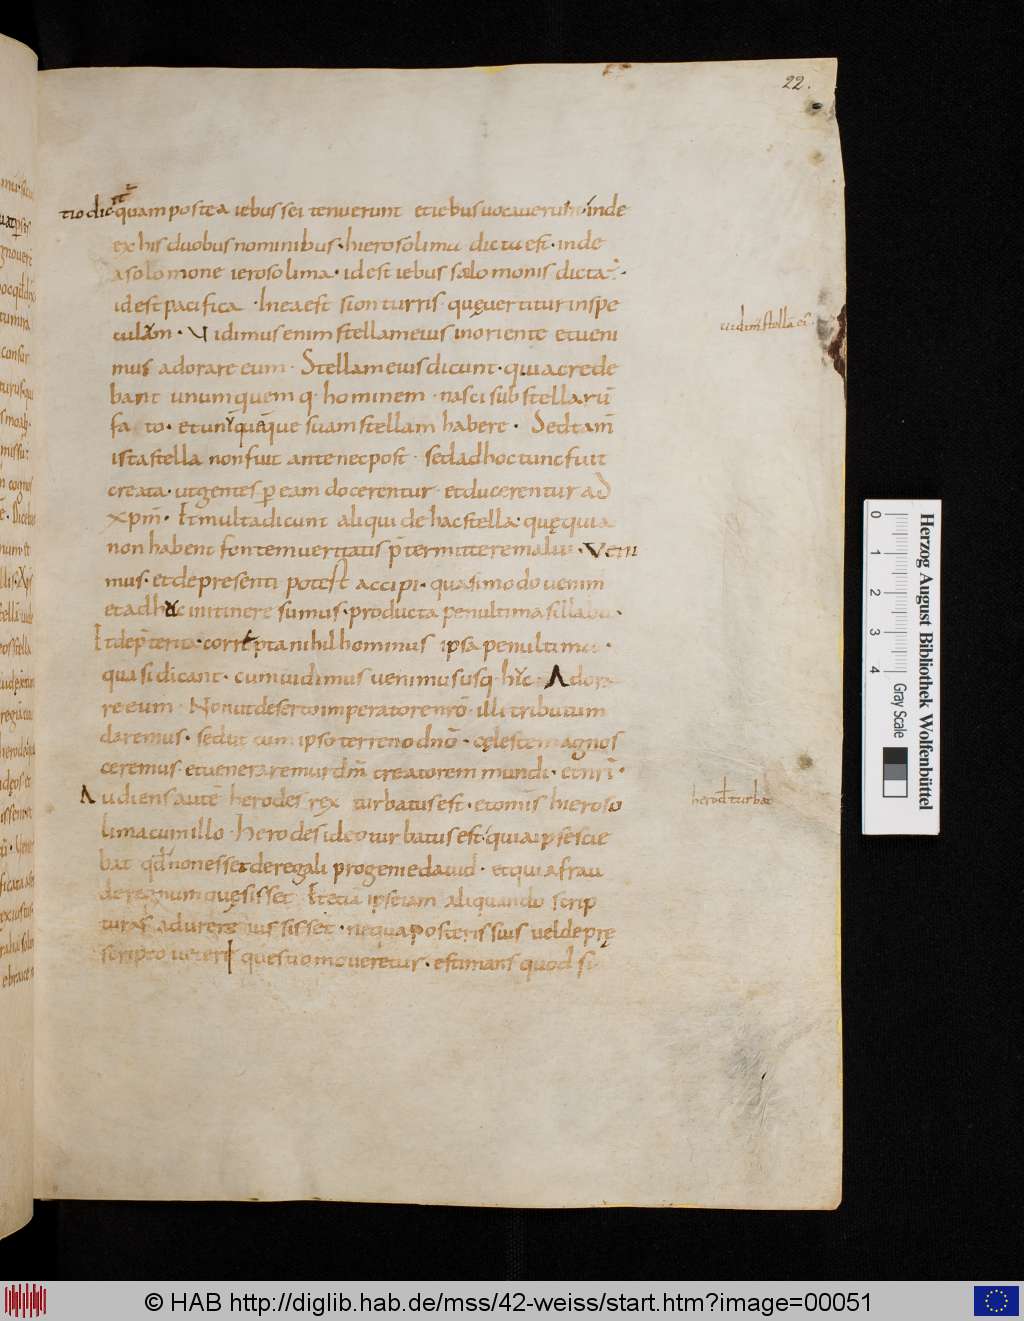 22.
tio dic̄ quam postea iebussei tenuerunt et iebus uocauerunt· inde
ex his duobus nominibus· hierosolima dicta est· inde
a solomone ierosolima· id est iebus salomonis dicta·
id est pacifica· In ea est sion turris quę uertitur in spe
culam· Vidimus enim stellam eius in oriente et ueni
mus adorare eum· Stellam eius dicunt· quia crede
bant unumquemq· hominem· nasci sub stellarū
fa to· et unūquēque suam stellam habere· Sed tam̄
ista stella non fuit ante nec post· sed ad hoc tunc fuit
creata· ut gentes p eam docerentur· et ducerentur ad
xpm̄· Et multa dicunt aliqui de hac stella· quę quia
non habent fontem ueritatis p̄termittere malui· Veni
mus· et de presenti potest accipi· quasi modo uenim̄
et adhuc in itinere sumus· producta penultima sillaba·
Et de p̄terita· correpta nihilhominus ipsa penultima·
quasi dicant· cum uidimus uenimus usq· huc· Adora
re eum· Non ut deserto imperatore nrō· illi tributum
daremus· sed ut cum ipso terreno dnō· cęleste magnos
ceremus· et ueneraremur dm̄ creatorem mundi· et nrī·
Audiens autē herodes rex turbatus est· et omīs hieroso
lima cum illo· Herodes ideo turbatus est· quia ipse scie
bat qd̄ non esset de regali progenie dauid· et quia frau
de regnum quęsisset Et etiā ipse iam aliquando scrip
turas adurere iussisset· ne qua posteris suis uel de prę
scripto uetere questio moueretur· estimans quod si
uidim̄ stellā ei·
herod̄ turbat
0 1 2 3 4
Herzog August Bibliothek Wolfenbüttel
Gray Scale
© HAB http://diglib.hab.de/mss/42-weiss/start.htm?image=00051